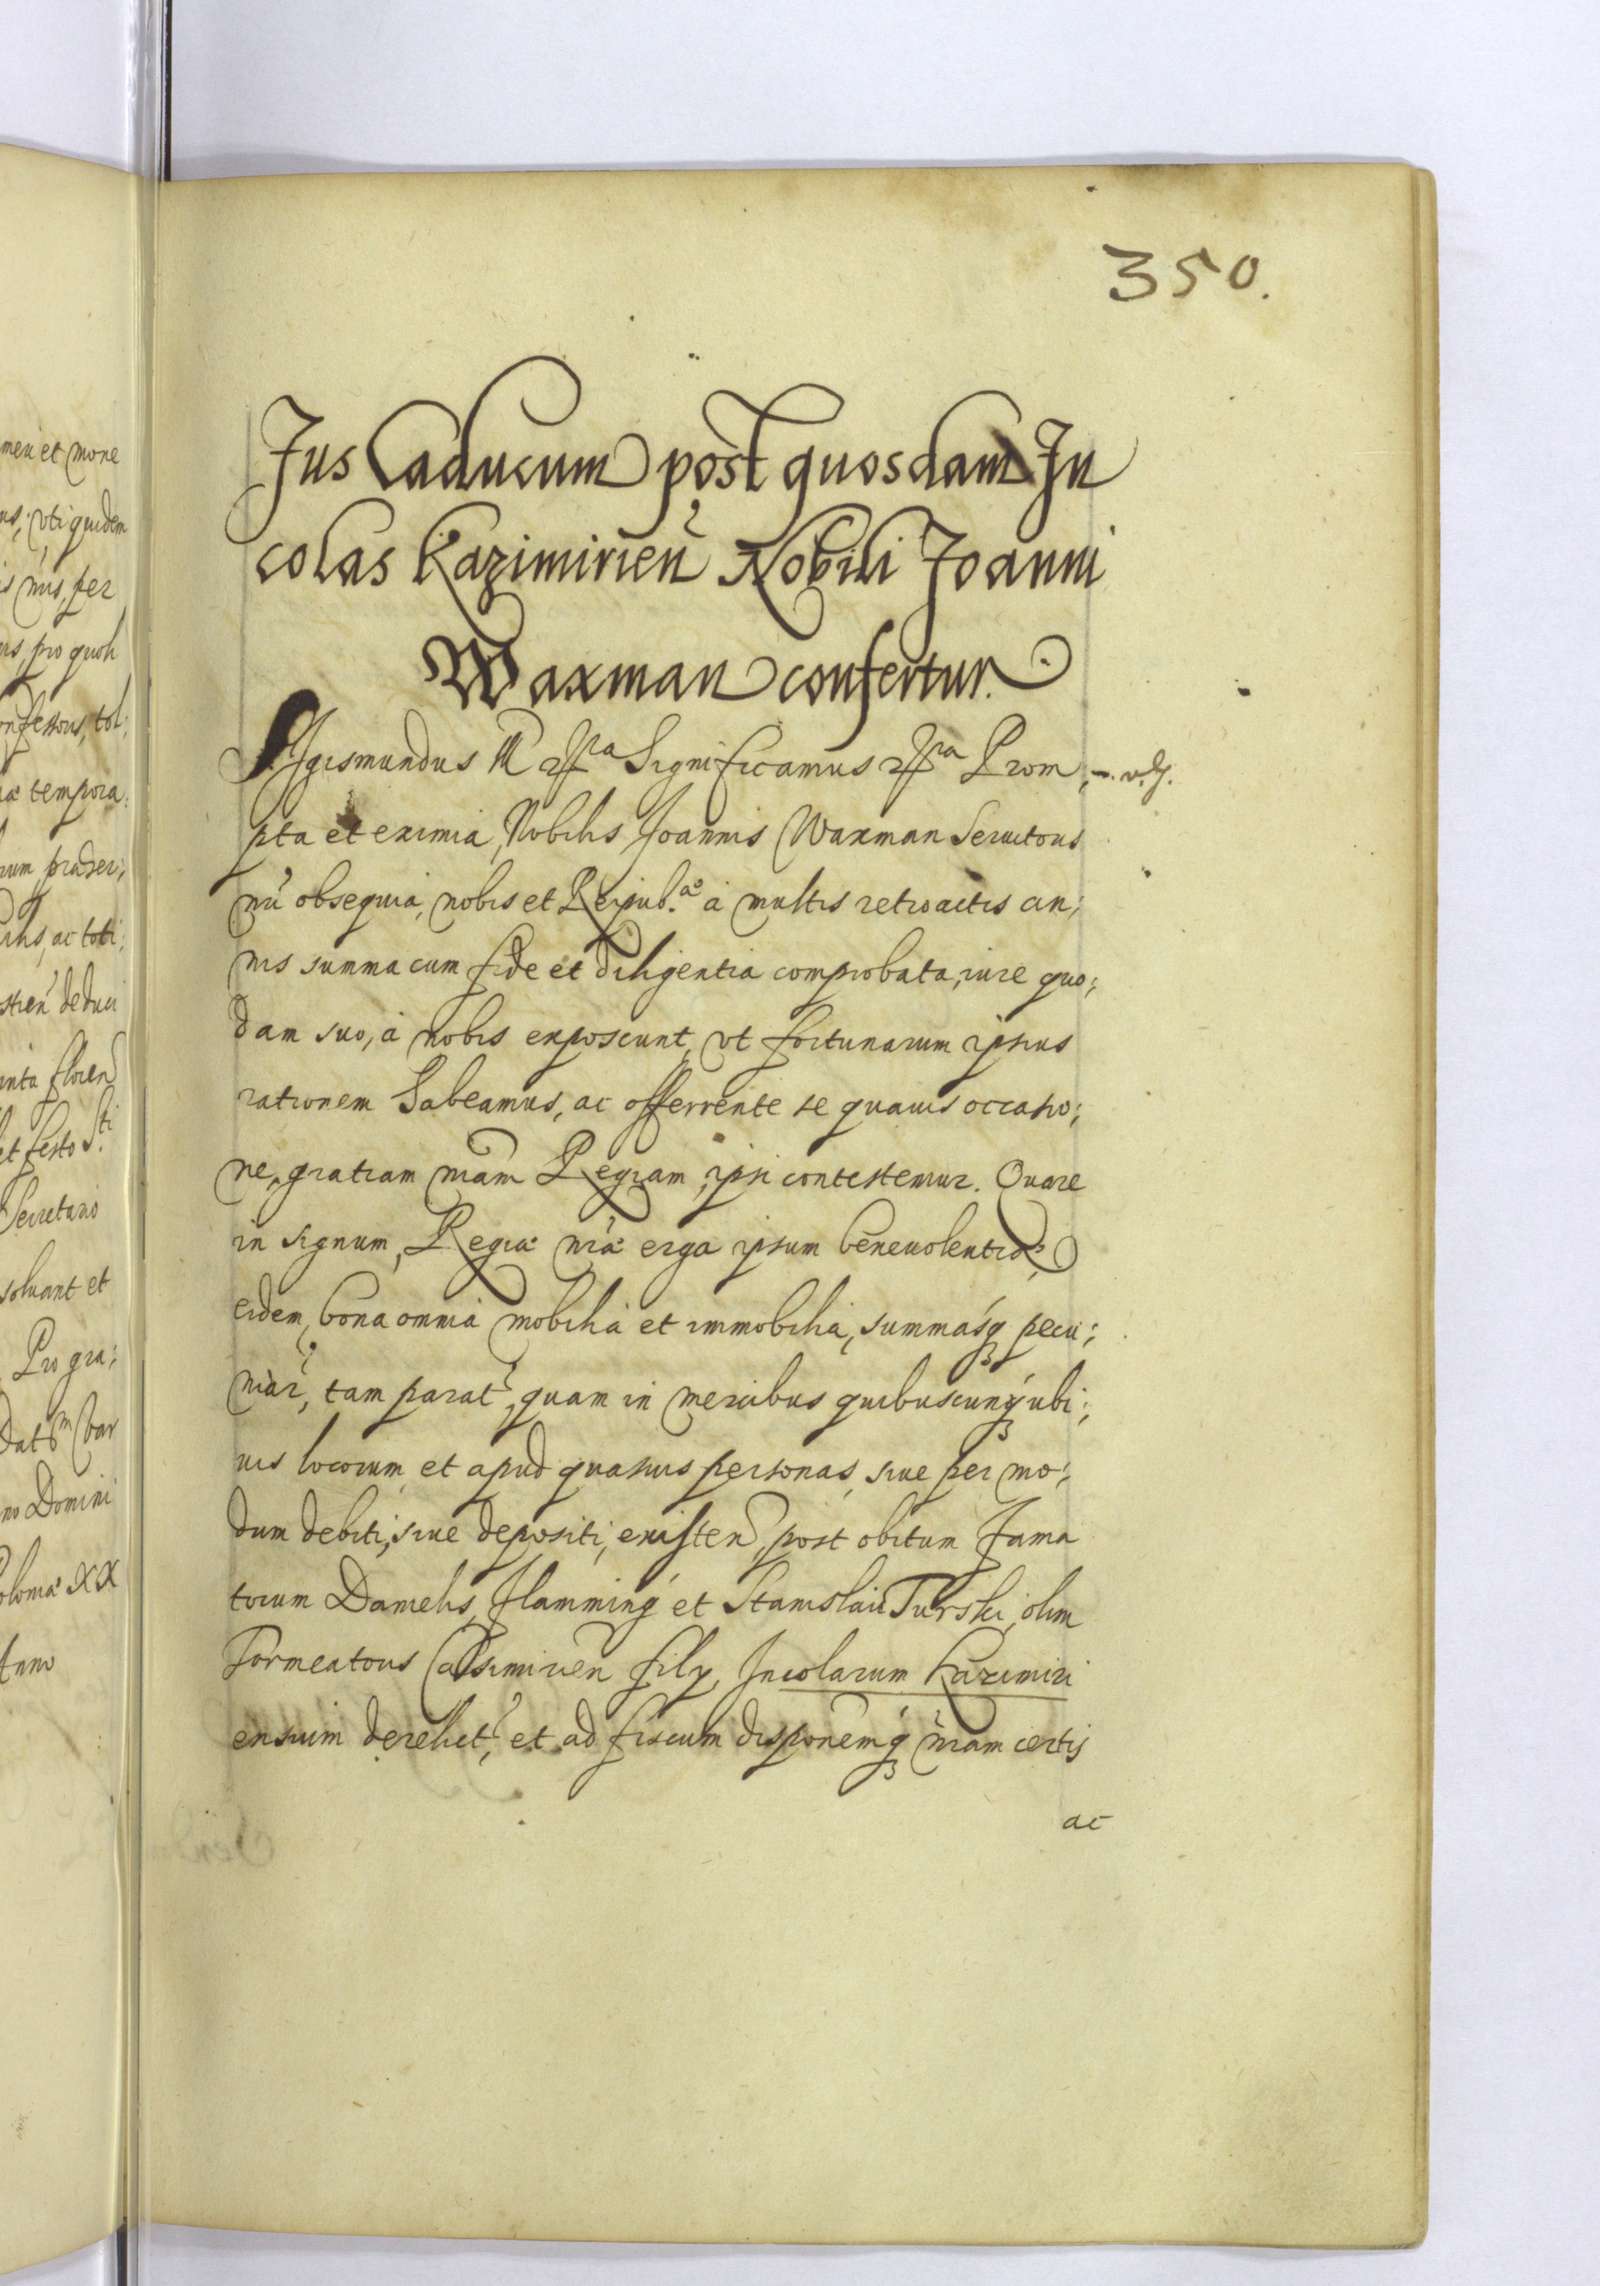 350.
Jus Caducum post quosdam In
colas Kazimirien Nobili Joanni
Waxman confertur.
Sigismundus III etc Significamus etc Prom
pta et eximia, Nobilis Joannis Waxman Seruitoris
nri obsequia, nobis et Reipub. a multis retroactis an;
nis summa cum fide et diligentia comprobata, iure quo;
dam suo, à nobis exposcunt, vt fortunarum ipsius
rationem habeamus, ac offerrente se quauis occasio;
ne, gratiam nram Regiam, ipsi contestemur. Quare
in signum, Regiæ nræ erga ipsum beneuolentiæ,
eidem, bona omnia mobilia et immobilia, summasq pecu;
niar, tam parat, quam in mercibus quibuscunq ubi;
uis locorum et apud quasuis personas, siue per mo;
dum debiti, siue depositi, existen, post obitum Fama
torum Danielis, Flamming et Stanislai Turski, olim
Tormentoris Cassimirien filij, Incolarum Kazimiri
ensium derelict, et ad fiscum disponemq nram certis
ac
men et mone
uti quidem
nris, per
pro quoli
confessus, tol;
tempora
ac toti;
deduci
inta floren
et festo Sti
Secretario
soluant et
Pro gra;
Dat
no Domini
Poloniæ XX
Anno